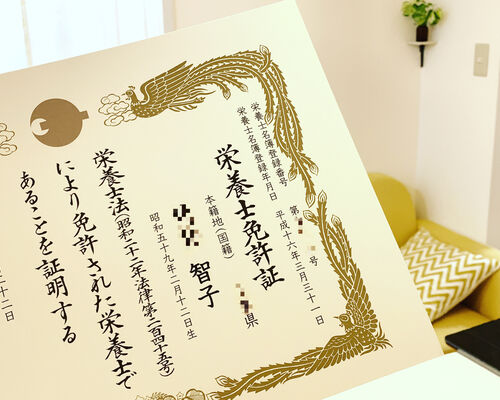 栄養士名簿登録番号 第 号
栄養士名簿登録年月日 平成十六年三月三十一日
栄養士免許証
本籍地(国籍) 県
智子
昭和五十九年二月十二日生
栄養士法(昭和二十二年法律第二百四十五号)
により免許された栄養士で
あることを証明する
二十二日